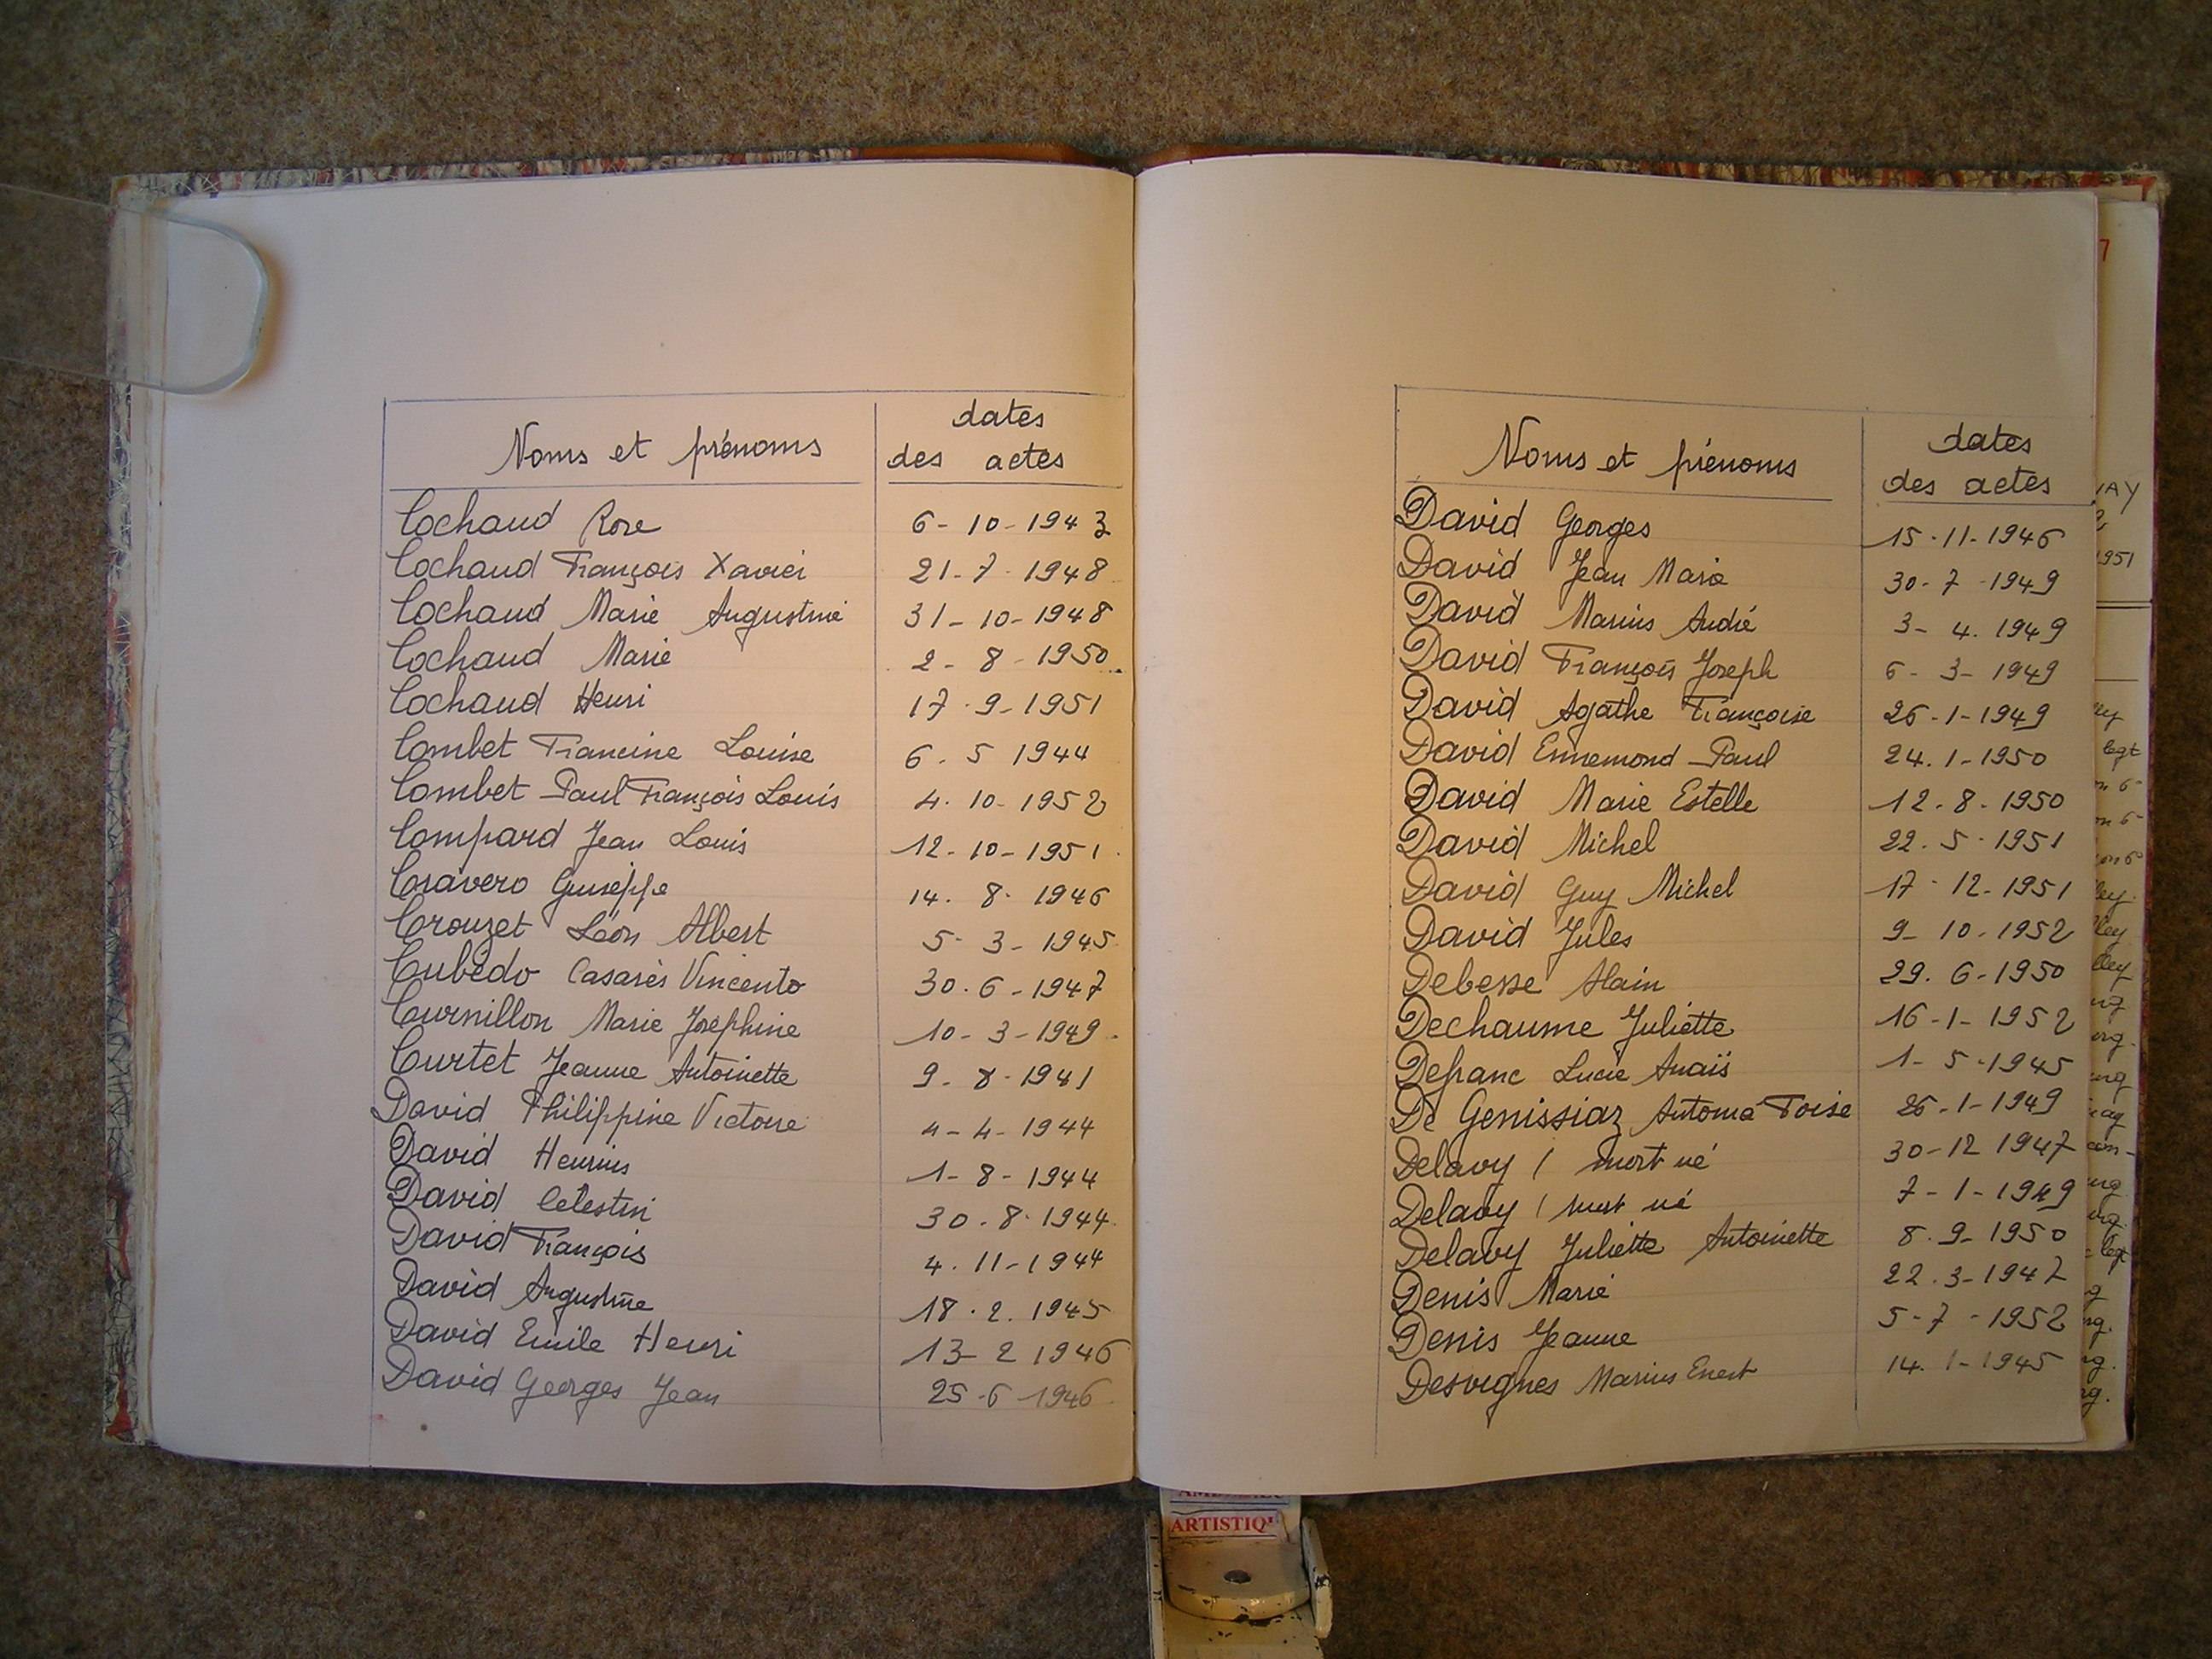 Noms et prénoms dates des actes
Cochaud Rose 6-10-1943
Cochaud François Xavier 21-7-1948
Cochaud Marie Augustine 31-10-1948
Cochaud Marie 2-8-1950
Cochaud Henri 17-9-1951
Combet Francine Louise 6.5 1944
Combet Paul François Louis 4.10-1952
Compard Jean Louis 12-10-1951
Cravero Guiseppe 14.8.1946
Crouzet Léon Albert 5-3-1945
Cubedo Casarès Vincento 30.6-1947
Curnillon Marie Joséphine 10-3-1949
Curtet Jeanne Antoinette 9-8-1941
David Philippine Victoire 4-4-1944
David Henrius 1-8-1944
David Célestin 30.8.1944
David François 4.11-1944
David Augustine 18.2.1945
David Emile Henri 13-2 1946
David Georges Jean 25-6-1946
Noms et prénoms dates des actes
David Georges 15.11-1946
David Jean Marie 30-7-1949
David Marius André 3-4.1949
David François Joseph 6-3-1949
David Agathe Françoise 26-1-1949
David Ennemond Paul 24.1-1950
David Marie Estelle 12.8.1950
David Michel 22.5.1951
David Guy Michel 17-12-1951
David Jules 9-10.1952
Debesse Alain 29.6-1950
Dechaume Juliette 16-1-1952
Defranc Lucie Anaïs 1-5-1945
De Genissiaz Foise 26-1-1949
Delavy / mort né 30-12 1947
Delavy / mort né 7-1-1949
Delavy Juliette Antoinette 8.9-1950
Denis Marie 22.3-1947
Denis Jeanne 5-7-1952
Desvignes Marius Enest 14.1-1945
7
1951
legt
ARTISTIQ